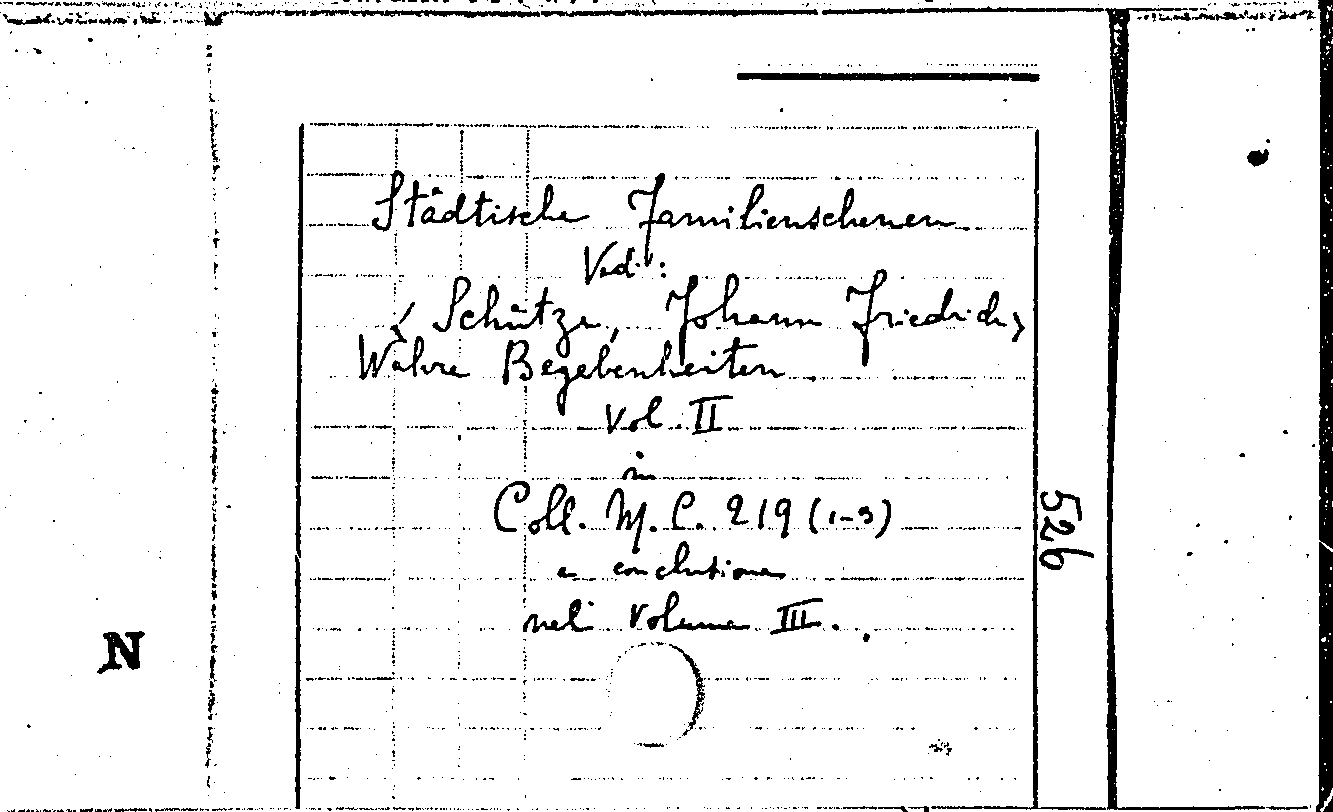 Städtische Familienschenen
Vedi:
< Schütze, Johann Friedrich >
Wahre Begebenheiten
Vol. II
in
Coll. M. C. 219 (1-3)
e conclusione
nel volume III.
526
N